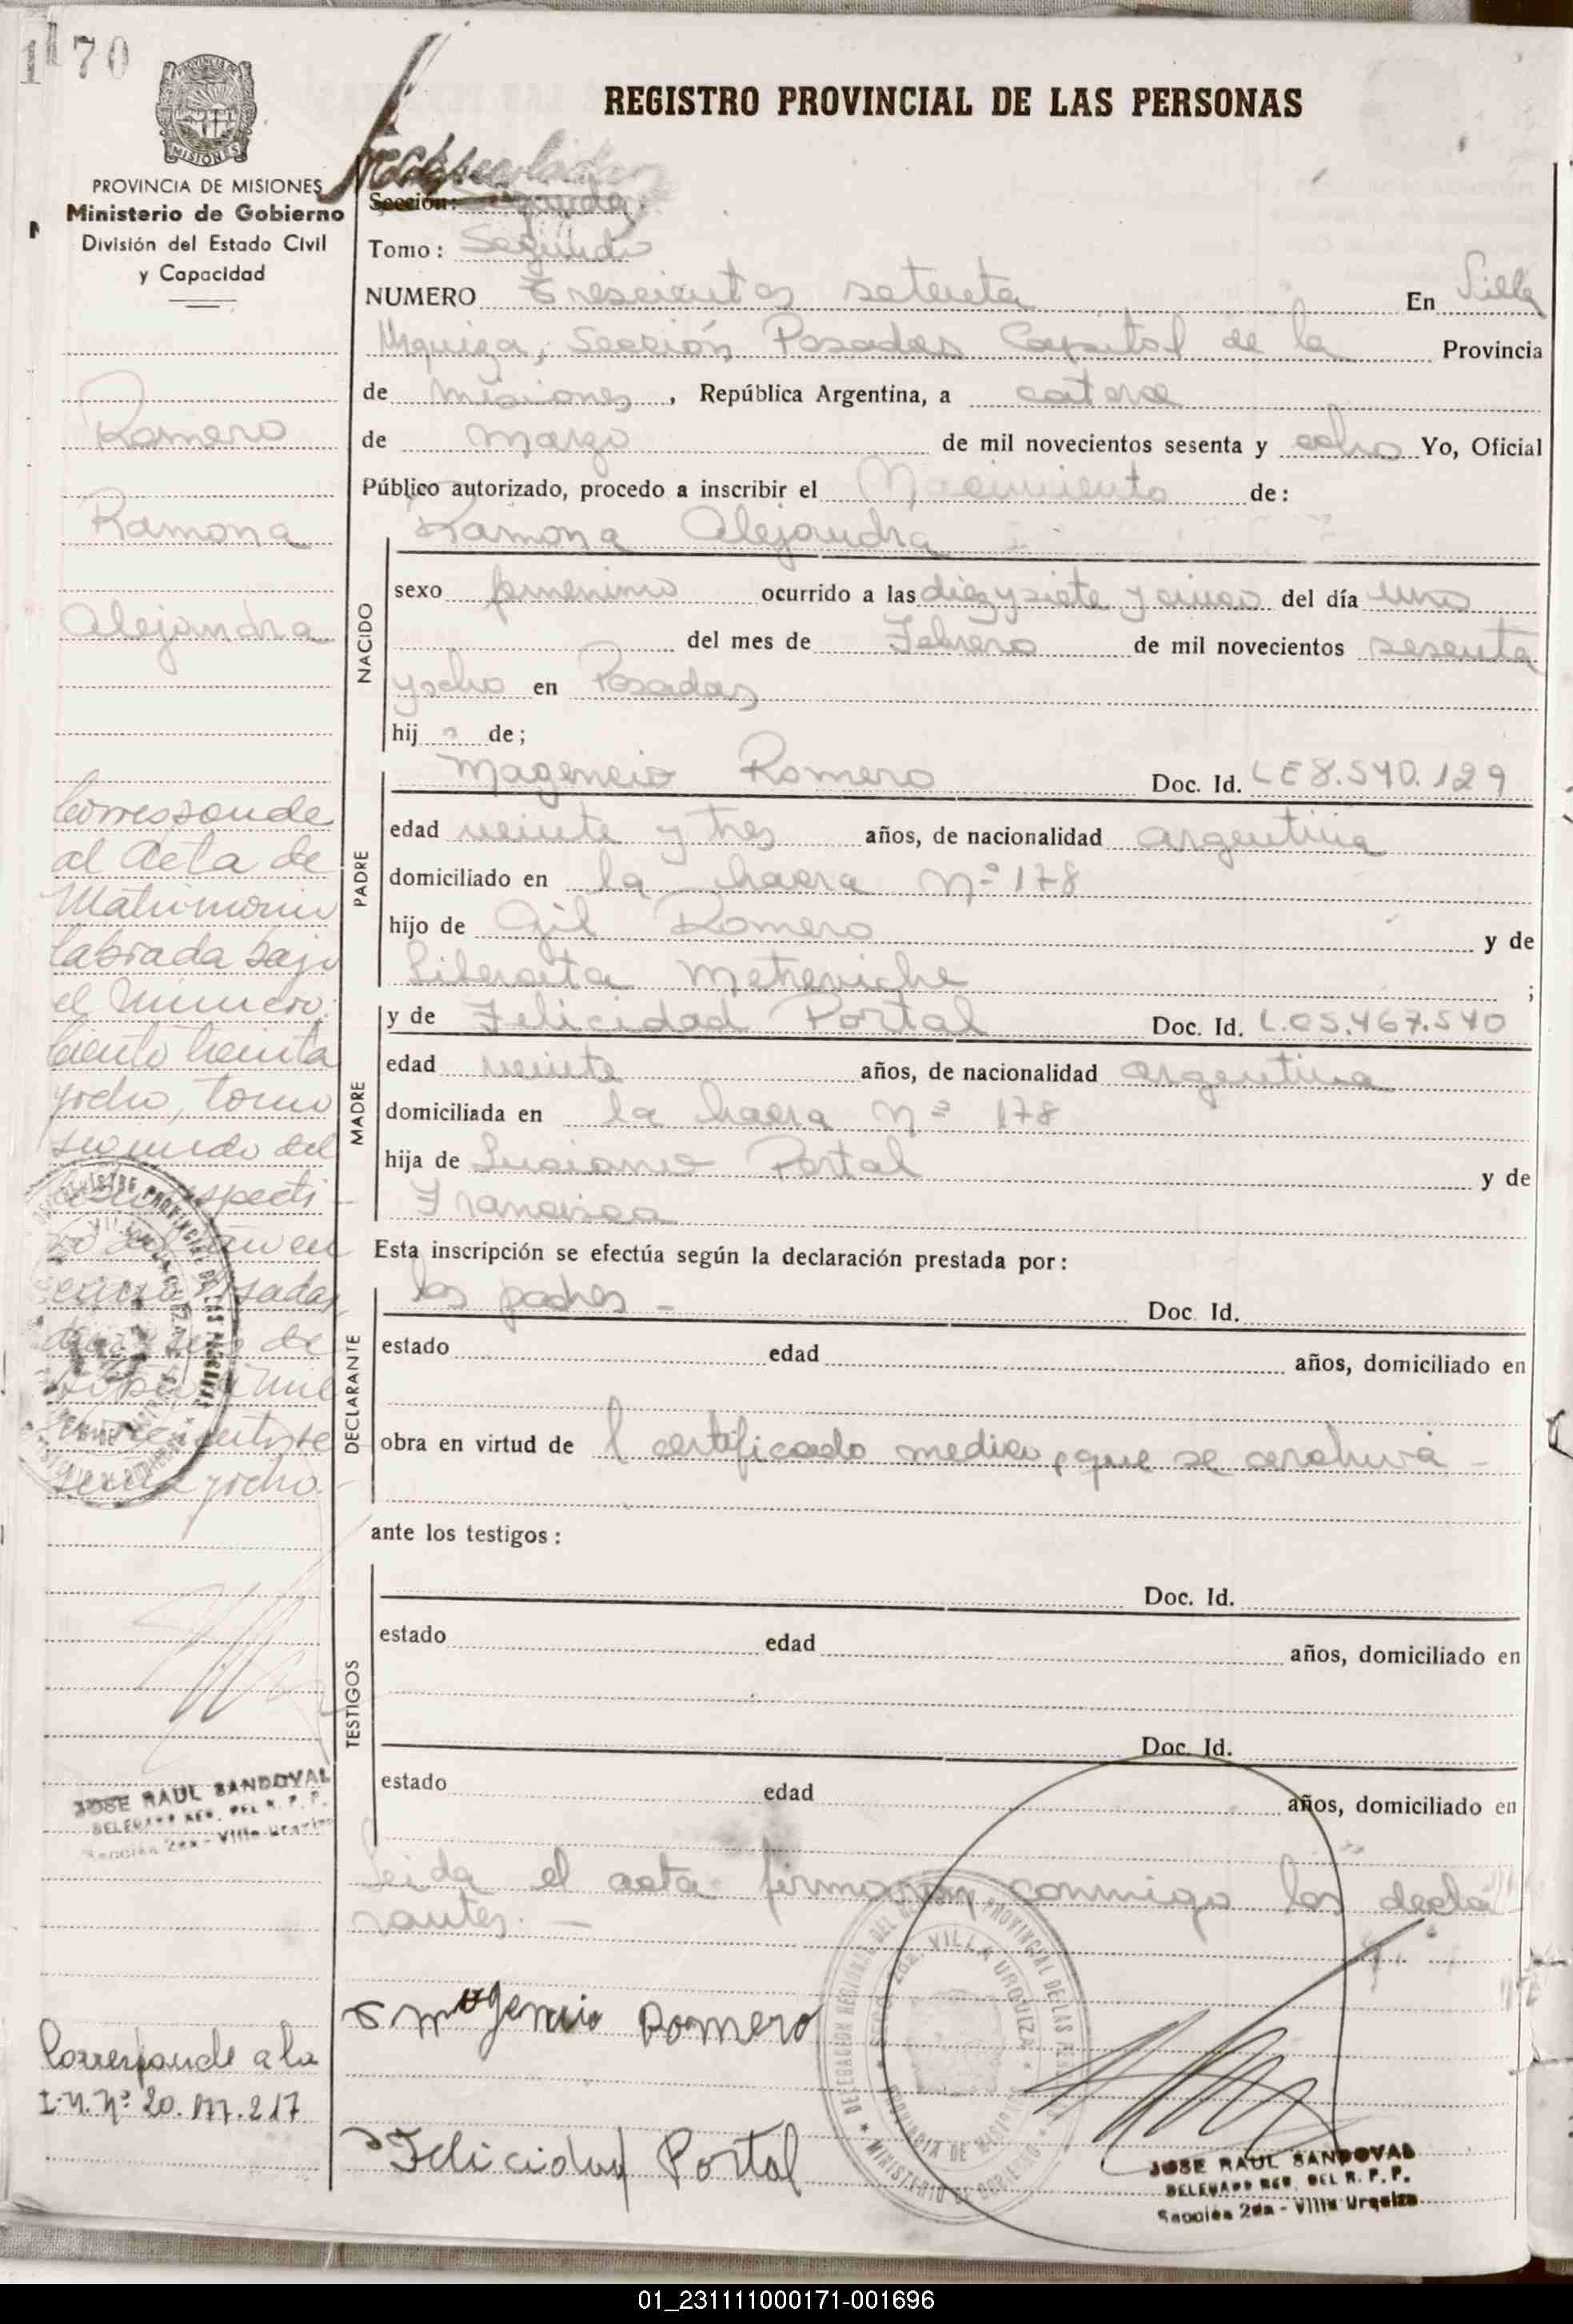 1170
MISIONES
PROVINCIA DE MISIONES
Ministerio de Gobierno
División del Estado Civil
y Capacidad
Romero
Ramona
Alejandra
Corresponde
al Acta de
Matrimonio
labrada bajo
el Número:
Ciento treinta
yocho, tomo
segundo del
Posadas,
de
mil
yocho.-
JOSE RAUL SANDOVAL
DELEGADO REG. DEL R. P. P.
Sección 2da - Villa Urquiza
Corresponde a la
I.N. Nº 20.177.217
REGISTRO PROVINCIAL DE LAS PERSONAS
Sección:
Tomo: Segundo
NUMERO Trescientos setenta En Villa
Urquiza, Sección Posadas Capital de la Provincia
de Misiones, República Argentina, a catorce
de Marzo de mil novecientos sesenta y ocho Yo, Oficial
Público autorizado, procedo a inscribir el Nacimiento de:
Ramona Alejandra
NACIDO
sexo femenino ocurrido a las diezysiete y cinco del día uno
del mes de Febrero de mil novecientos sesenta
yocho en Posadas
hij a de;
PADRE
Magencio Romero Doc. Id. LE 8.540.129
edad veinte y tres años, de nacionalidad argentina
domiciliado en la chacra Nº 178
hijo de Gil Romero y de
Liberata ;
MADRE
y de Felicidad Portal Doc. Id. L.C5.467.540
edad veinte años, de nacionalidad argentina
domiciliada en la chacra Nº 178
hija de Luciano Portal y de
Francisca
Esta inscripción se efectúa según la declaración prestada por:
DECLARANTE
los padres - Doc. Id.
estado edad años, domiciliado en
obra en virtud de l certificado medico, que se archiva -
ante los testigos:
TESTIGOS
Doc. Id.
estado edad años, domiciliado en
Doc. Id.
estado edad años, domiciliado en
Leida el acta firmaron conmigo los decla
rantes. -
Magencio Romero
Felicidad Portal
DELEGACION REGIONAL DEL REGISTRO PROVINCIAL DE LAS PERSONAS
SECC. 2da. VILLA URQUIZA
PROVINCIA DE MISIONES
MINISTERIO DE GOBIERNO
JOSE RAUL SANDOVAL
DELEGADO REG. DEL R. P. P.
Sección 2da - Villa Urquiza
01_231111000171-001696